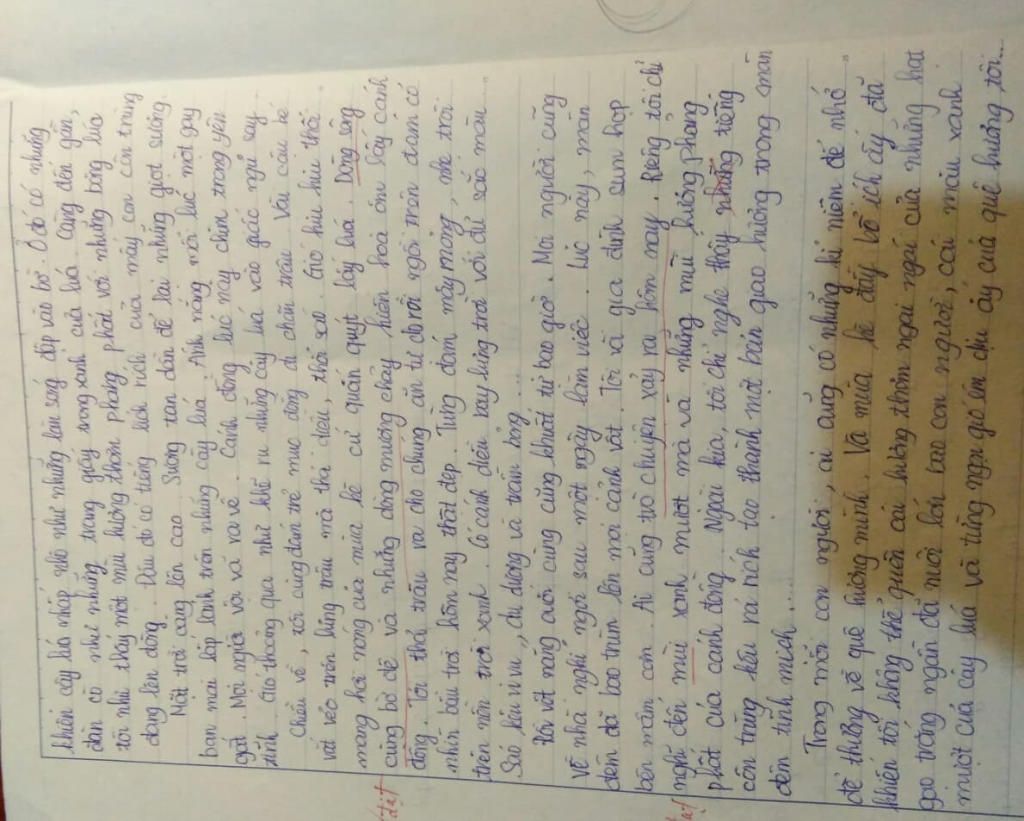 khiến cây lúa nhấp nhô như những làn sóng dập vào bờ. Ở đó có những
đàn cò như những trang giấy song sanh của lúa. Càng đến gần,
tôi như thấy một mùi hương thơm phưng phứt với những bông lúa
đang lên đòng. Đâu đó có tiếng rích rích của mấy con côn trùng
Mặt trời càng lên cao. Sương tan dần để lại những giọt sương
ban mai lấp lánh trên những cây lúa. Ánh nắng mỗi lúc một gay
gắt. Mọi người vội vã ra về. Cánh đồng lúc này chìm trong yên
tĩnh. Gió thoảng qua như khẽ ru những cây lúa vào giấc ngủ say.
Chiều về, tôi cùng đám trẻ mục đồng đi chăn trâu. Vài cậu bé
vắt vẻo trên lưng trâu mà thả diều, thổi sáo. Gió hiu hiu thổi
mang hơi nóng của mùa hè cứ quấn quýt lấy lúa. Dòng sông
cùng bờ đê và những dòng mương chảy hiền hoà ôm lấy cánh
đồng. Tôi thả trâu ra cho chúng ăn tự do rồi ngồi trên đám cỏ
nhìn bầu trời hôm nay thật đẹp. Từng đám mây mỏng, nhẹ trôi
trên nền trời xanh. Có cánh diều bay lưng trời với đủ sắc màu.
Sáo kêu vi vu, du dương và trầm bổng...
Rồi vệt nắng cuối cùng cũng khuất từ bao giờ. Mọi người cũng
về nhà nghỉ ngơi sau một ngày làm việc. Lúc này, màn
đêm đã bao trùm lên mọi cảnh vật. Tôi và gia đình sum họp
bên mâm cơm. Ai cũng trò chuyện xảy ra hôm nay. Riêng tôi chỉ
nghĩ đến mùi xanh mướt mà và những mùi hương phang
phất của cánh đồng. Ngoài kia, tôi chỉ nghe thấy những tiếng
côn trùng kêu rả rích tạo thành một bản giao hưởng trong màn
đêm tĩnh mịch....
Trong mỗi con người, ai cũng có những kỉ niệm để nhớ
để thương về quê hương mình. Và mùa hè đầy bổ ích ấy đã
khiến tôi không thể quên cái hương thơm ngai ngái của những hạt
gạo trắng ngần đã nuôi lớn bao con người, cái màu xanh
mướt của cây lúa và từng ngọn gió êm dịu ấy của quê hương tôi...
đạt